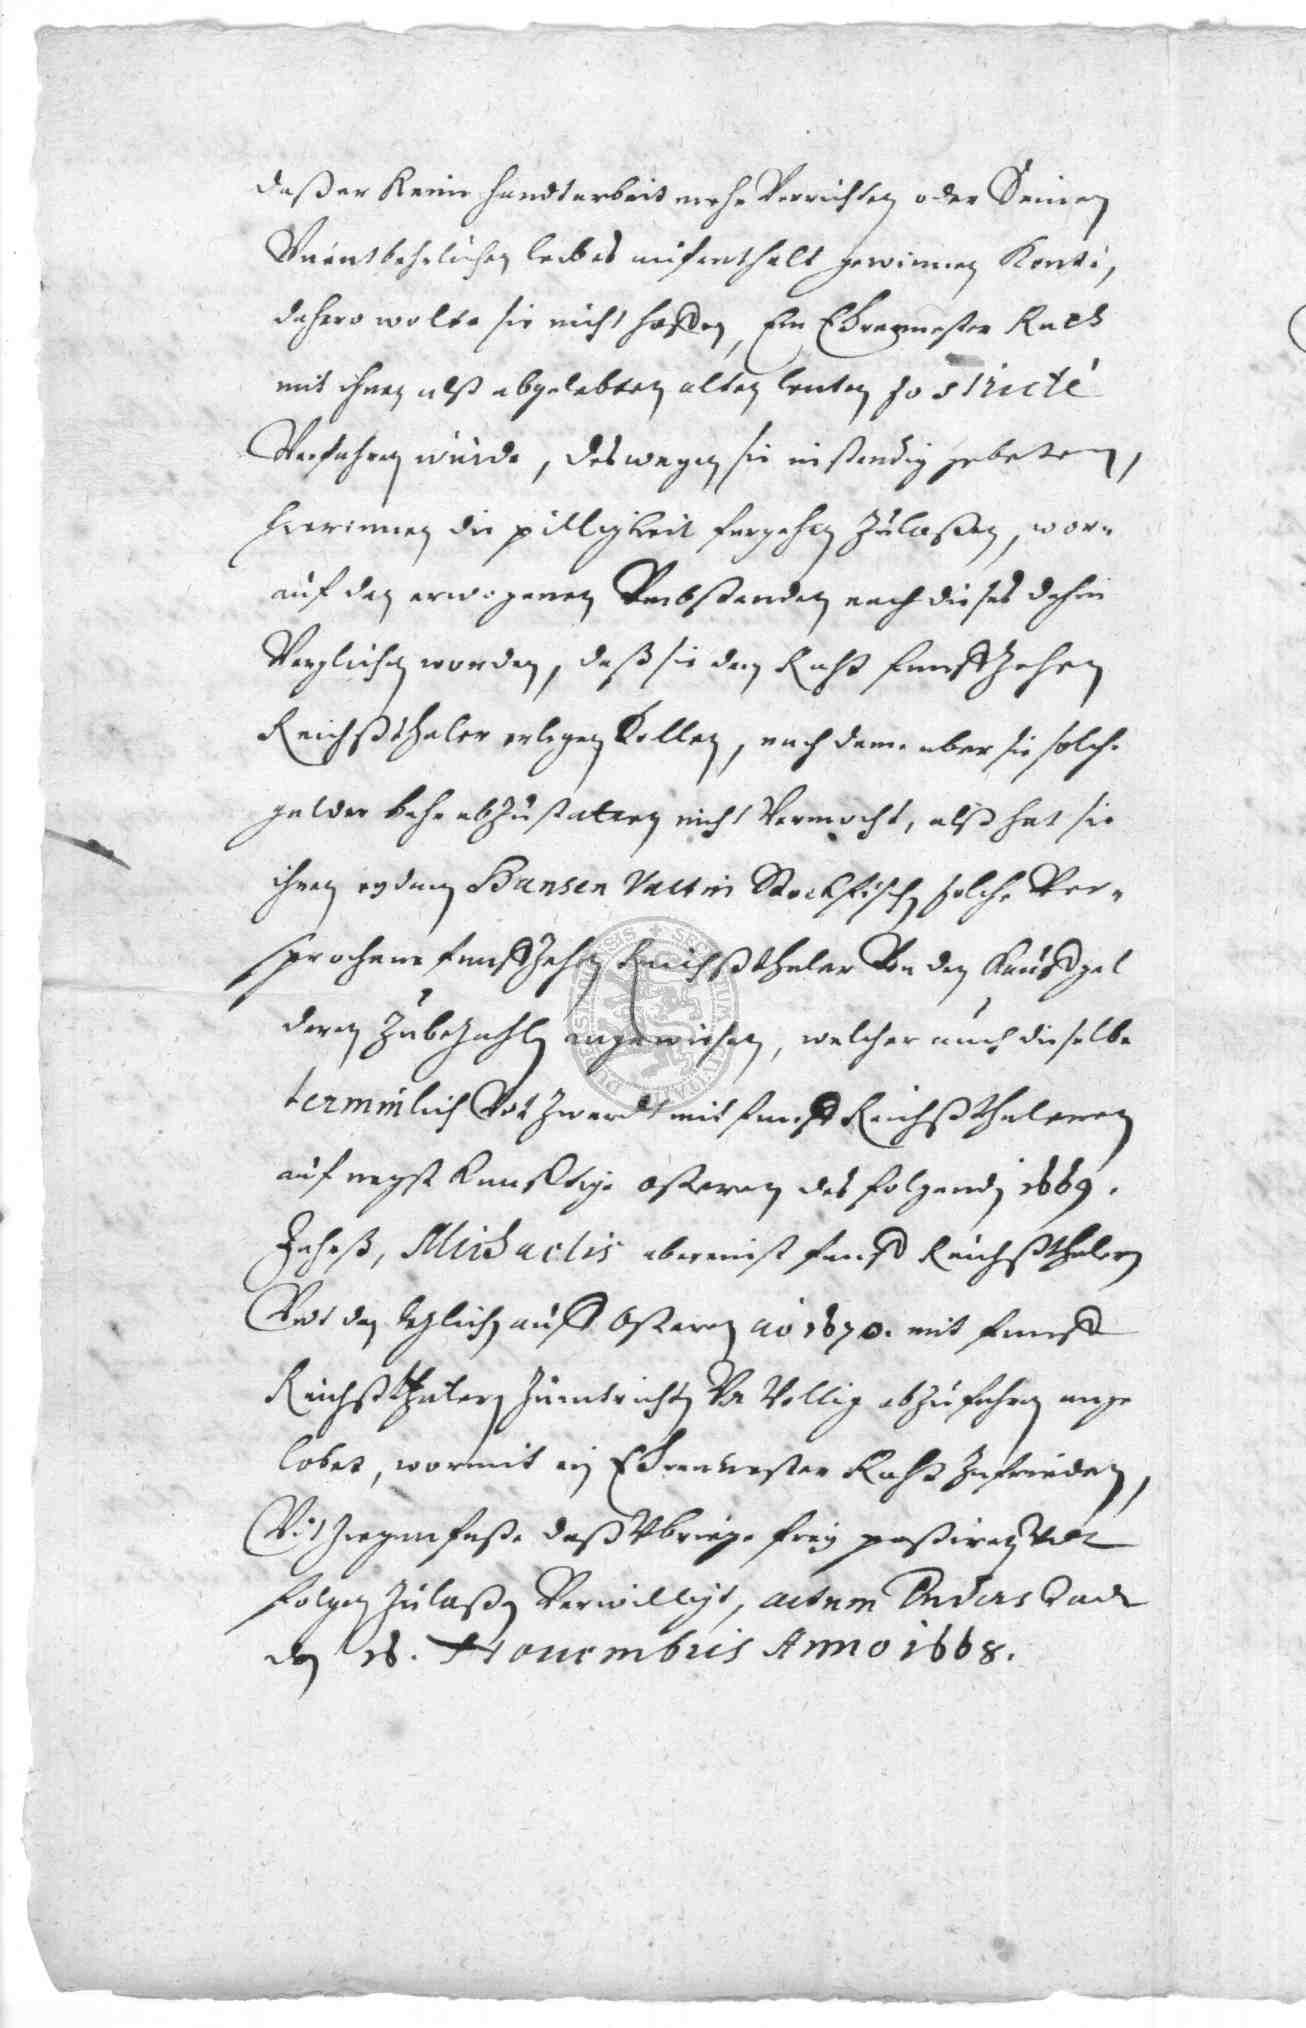 daß er keine handtarbeit mehr Verrichten oder Seinen
Vnentbehrlichen leibes aufenthalt gewinnen Könte,
dahero wolte sie nicht hoffen, Ein Ehrnvester Rath
mit ihnen alß abgelebten alten leuten so stricté
Verfahren würde, deswegen sie instendig gebeten,
hierinnen die pilligkeit furgehen Zulaßen, wor-
auf den erwogenen Vmbstenden nach dieses dahin
Verglichen worden, daß sie dem Raht funffzehen
Reichßthaler erlegen Sollen, nach deme aber sie solche
gelder bahr abzustatten nicht Vermocht, alß hat sie
ihren eydam Hansen Valtin Stockfisch solche Ver-
sprochene funffzehen Reichßthaler Von den Kauffgel
deren Zubezahlen angewiesen, welcher auch dieselbe
terminlich Vndt zwardt mit funff Reichßthaleren
auf negst Kunfftige osteren des folgenden 1669.
Jahrß, Michaelis abereinst funff Reichßthalern
Vndt den letzlich auff Osteren ao 1670. mit funff
Reichßthalern Zuentrichten Vndt Vollig abzufuhren ange
lobet, wormit ein Ehrenvester Raht Zufrieden,
Vndt hergegen daß Vbrige frey paßiren Vndt
folgen Zulaßen Verwilligt, actum Duderstadt
den 16. Nouembris Anno 1668.